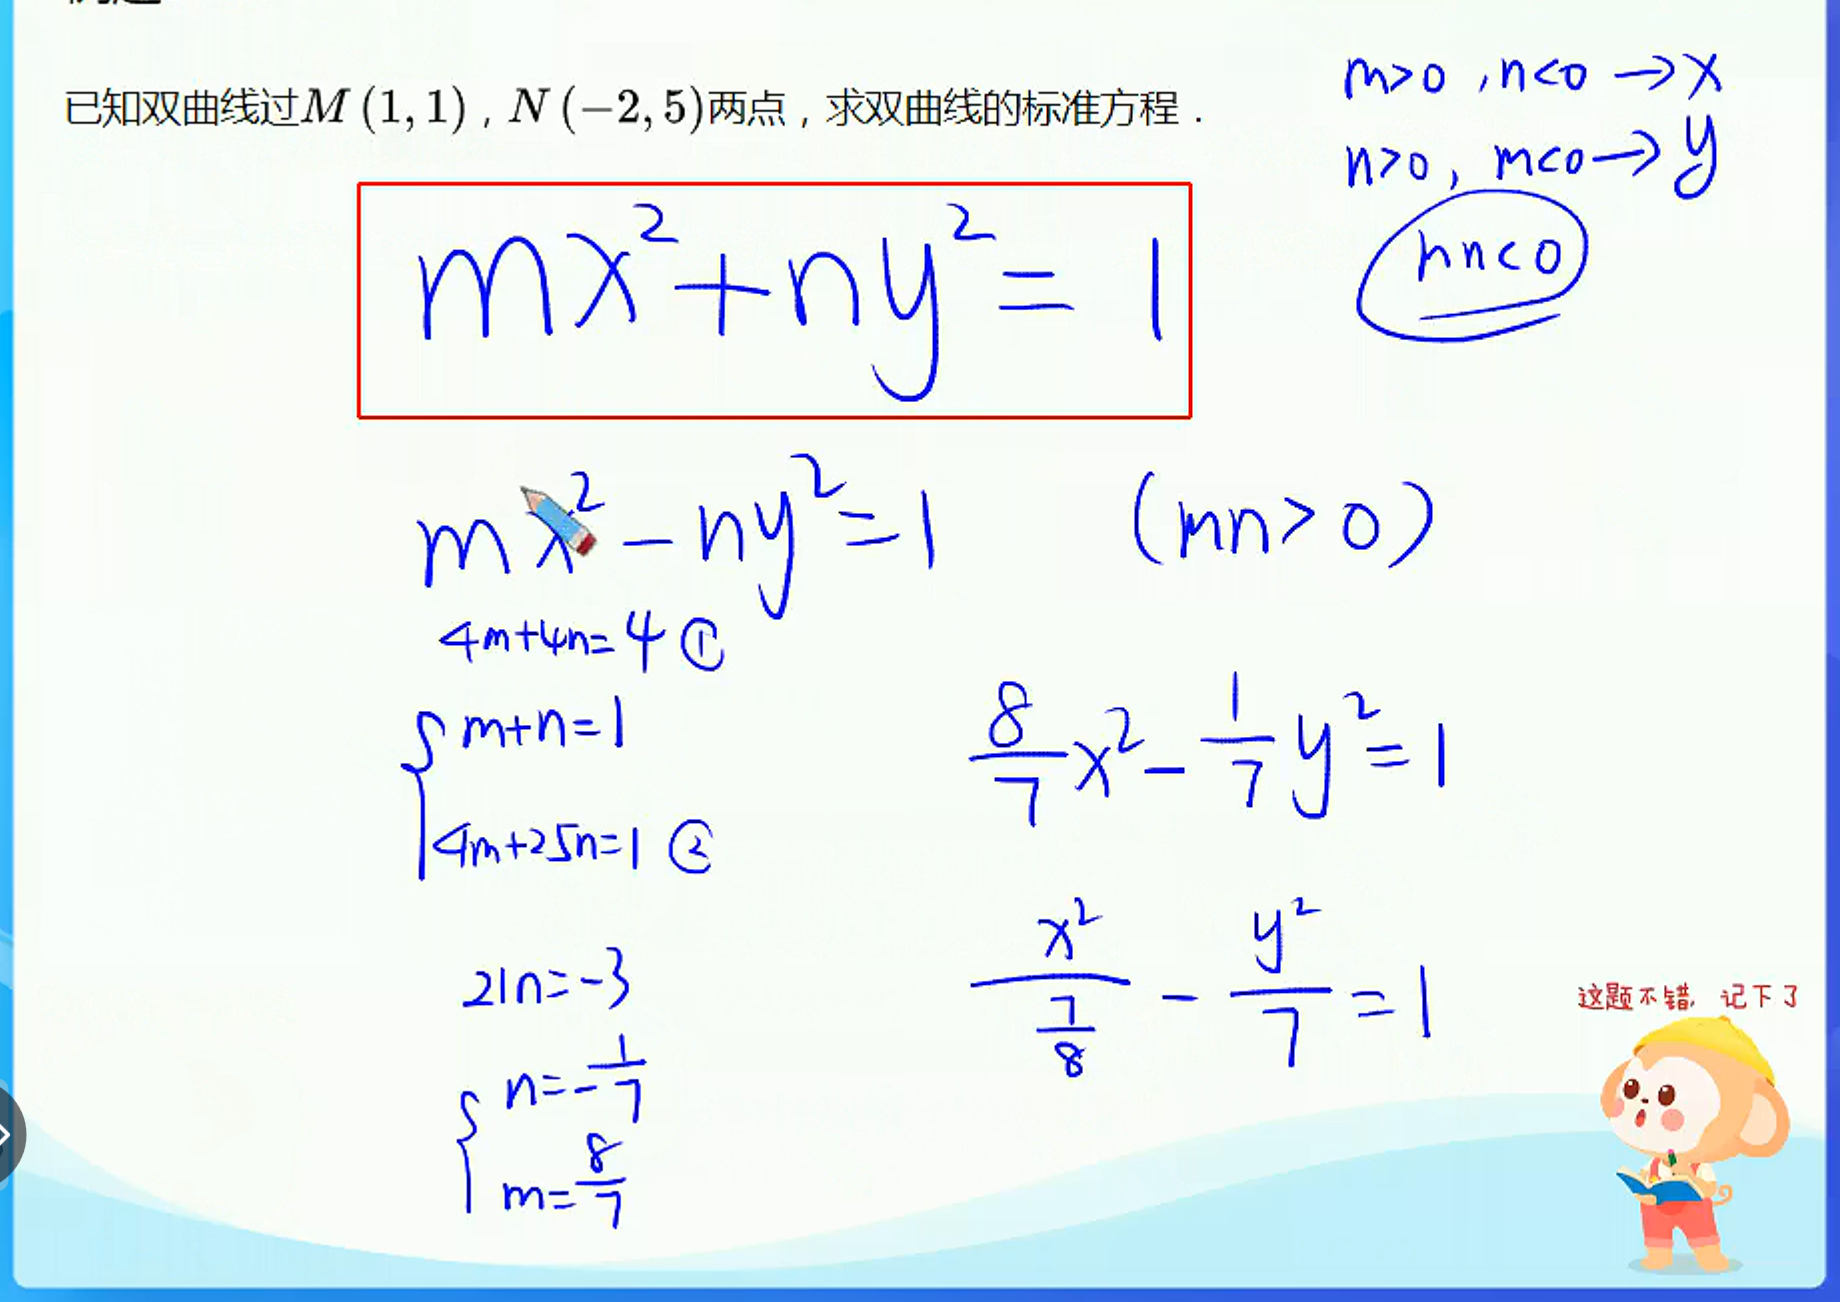 已知双曲线过M(1,1),N(−2,5)两点,求双曲线的标准方程.
m>0,n<0→x
n>0,m<0→y
mn<0
mx²+ny²=1
mx²−ny²=1 (mn>0)
4m+4n=4 ①
m+n=1
4m+25n=1 ②
21n=-3
n=-1/7
m=8/7
8/7x²-1/7y²=1
x²/(7/8)-y²/7=1
这题不错,记下了